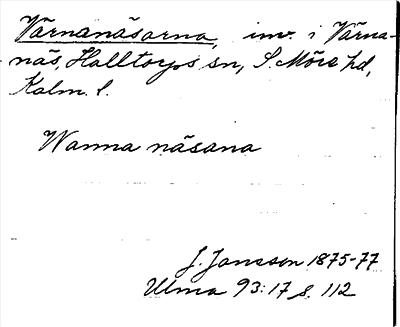 Värnanäsarna, inv. i Värna-
näs, Halltorps sn, S. Möre hd,
Kalm. l.
Wanna näsana
J. Jansson 1875-77
Ulma 93:17 s. 112